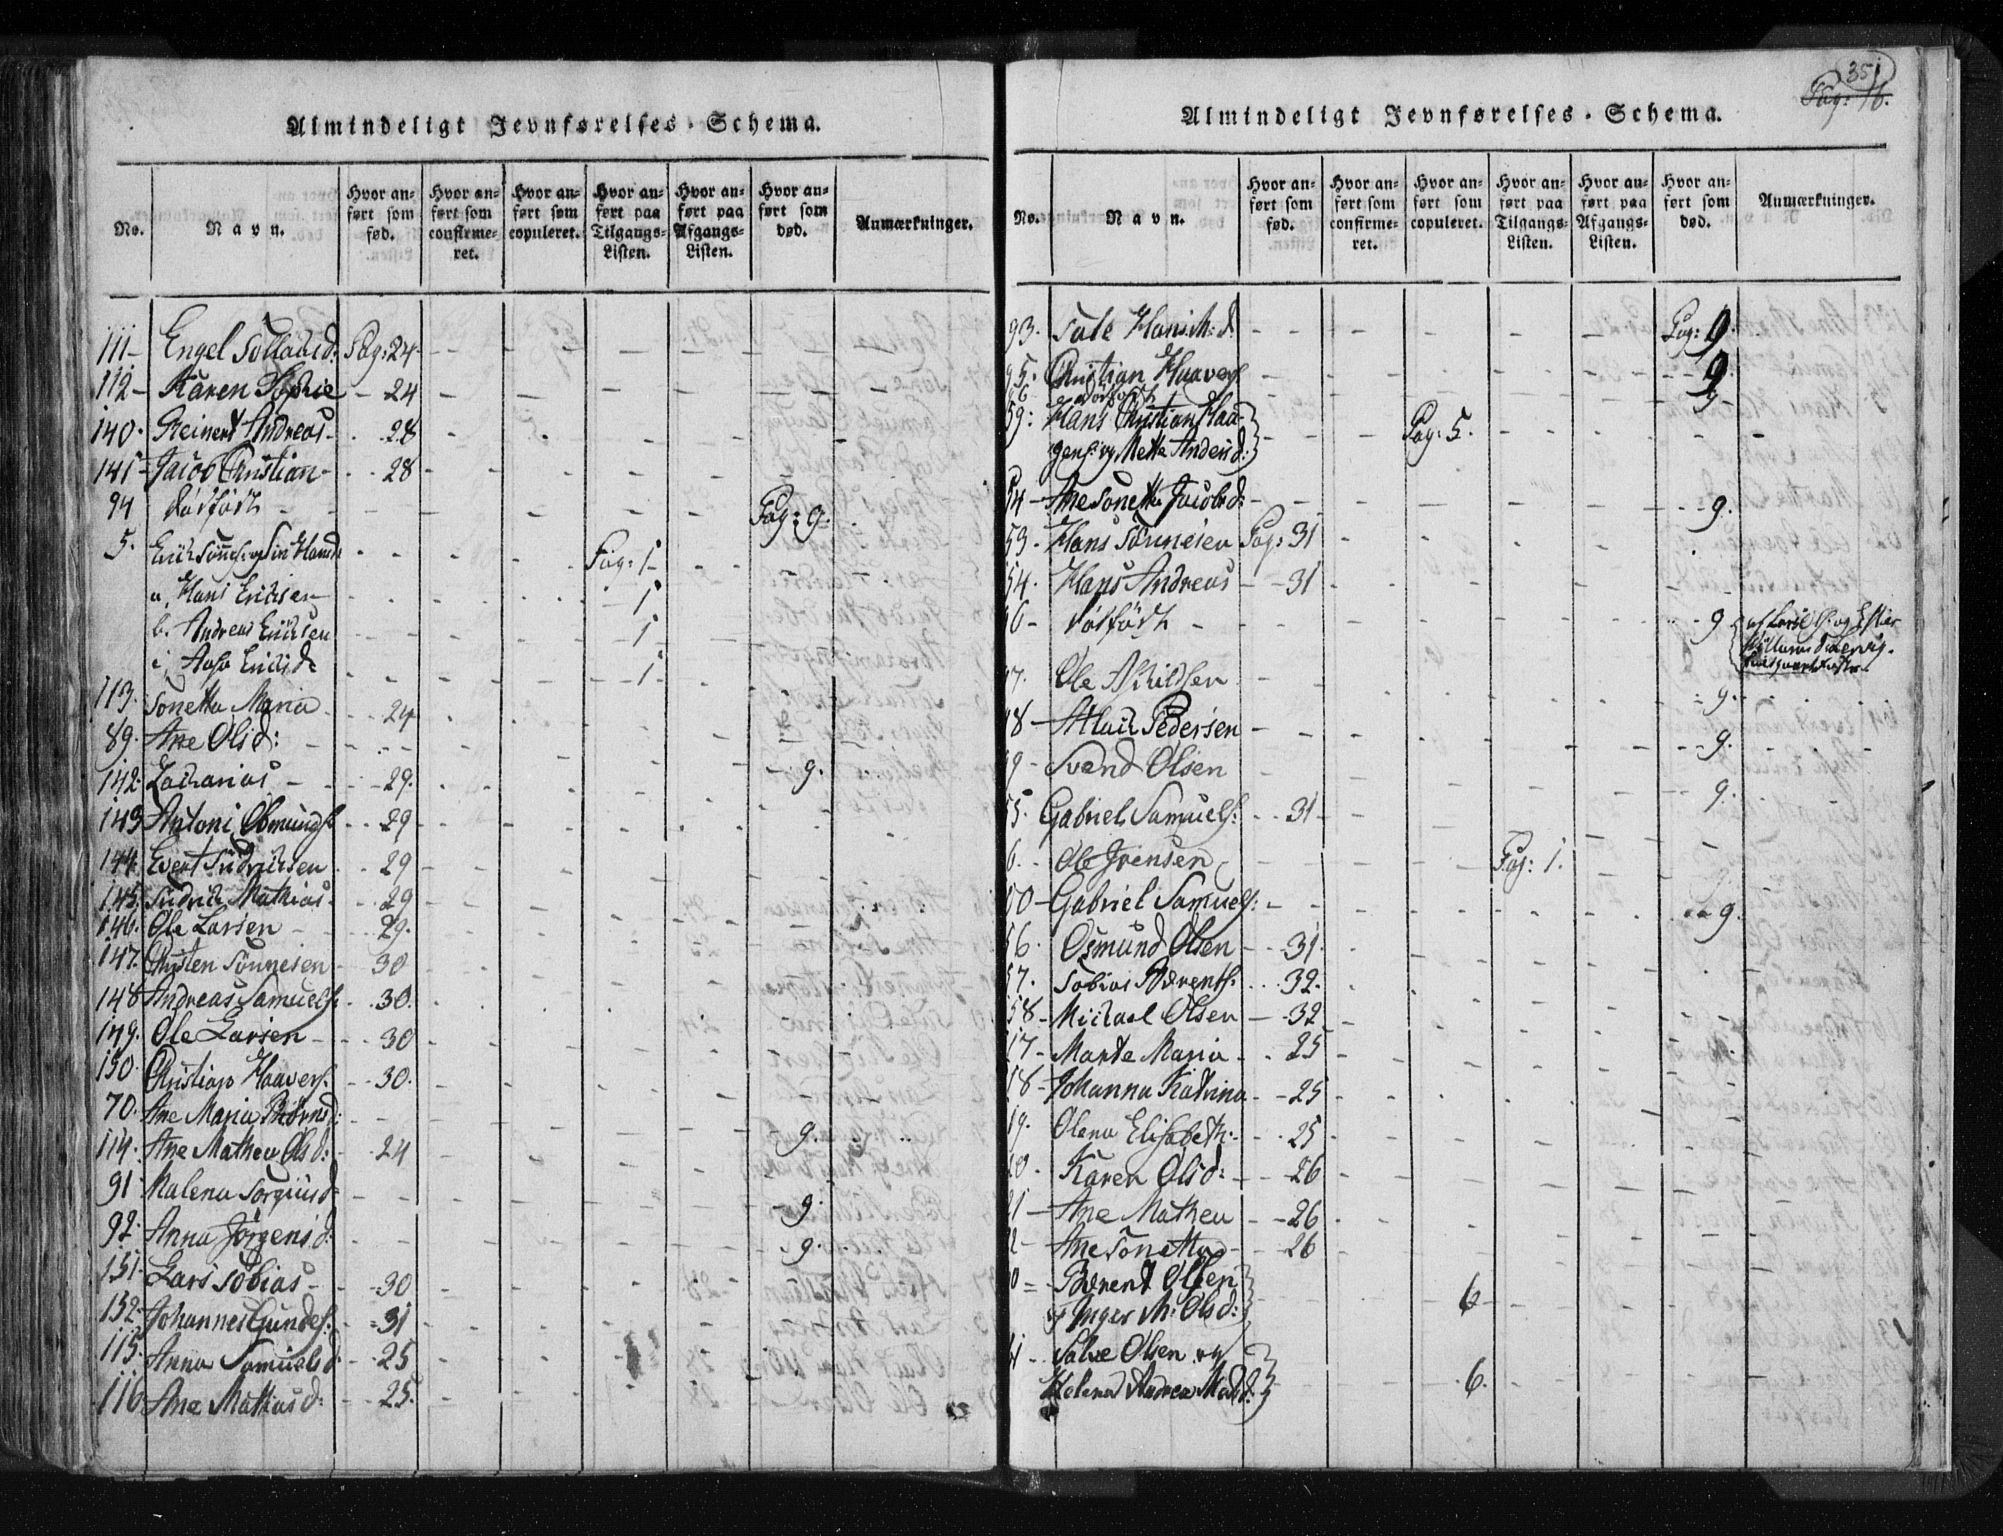 Almindeligt Jevnførelses-Schema.
No. Navn. Hvor anført som fød. Hvor anført som confirmeret. Hvor anført som copuleret. Hvor anført paa Tilgangs-Listen. Hvor anført paa Afgangs-Listen. Hvor anført som død. Anmærkninger.
111 - Engel Sollausd: Pag: 24
112 - Karen Sophie - 24
140. Reinert Andreas - 28
141 - Jacob Christian - 28
94 dödfödt - Pag: 9.
5. Hansd: Pag: 1
a. Hans Erichsen 1
b. Andreas Erichsen 1
c. Aasa Erichsd: 1
113. Tonetta Maria 24
89. Ane Olsd: 9.
142. Zacharias - 29.
143 Antoni Osmunds: 29
144. Evert 29
145. Mathias 29
146. Ole Larsen - 29.
147. Christen Tönnesen 30
148 Andreas Samuels: 30.
149. Ole Larsen - 30
150. Christian Haavers: 30.
70. Ane Maria Biörnsd: 9.
114. Ane Mathea Olsd: 24
91 Malena Torgiusd: 9.
92. Anna Jörgensd: 9.
151. Lars Tobias - 30
152. Johannes Gundes: 31
115. Anna Samuelsd: 25
116 Ane Mathiasd: 25.
351
Pag: 16.
Almindeligt Jevnførelses-Schema.
No. Navn. Hvor anført som fød. Hvor anført som confirmeret. Hvor anført som copuleret. Hvor anført paa Tilgangs-Listen. Hvor anført paa Afgangs-Listen. Hvor anført som død. Anmærkninger.
93. Tale Hansd: Pag: 9.
95. Christian Haavers: 9
dödfödt 9
59: Hans Christian Haa-
gens: og Mette Andersd: Pag: 5.
54 - Ane Tonetta Jacobsd: 9.
53 - Hans Tönnesen Pag: 31
54. Hans Andreas 31
dödfödt - 9
7. Ole Askildsen 9.
8 - Atlack Pedersen 9.
9 - Svend Olsen 9.
55. Gabriel Samuels: 31
6. - Ole Jensen Pag: 1.
50 - Gabriel Samuels: 9.
56. Osmund Olsen 31.
57. Tobias Berents: 32.
58 - Michael Olsen - 32
17 - Marte Maria 25
18 - Johanna Katrina 25
19. Olena Elisabeth 25
20. Karen Olsd: 26
21 - Ane Mathea 26
22 - Ane Tonetta 26
Berent Olsen
og Inger M: Olsd: 6
Salve Olsen og
Helena Andrea Madsd: 6.